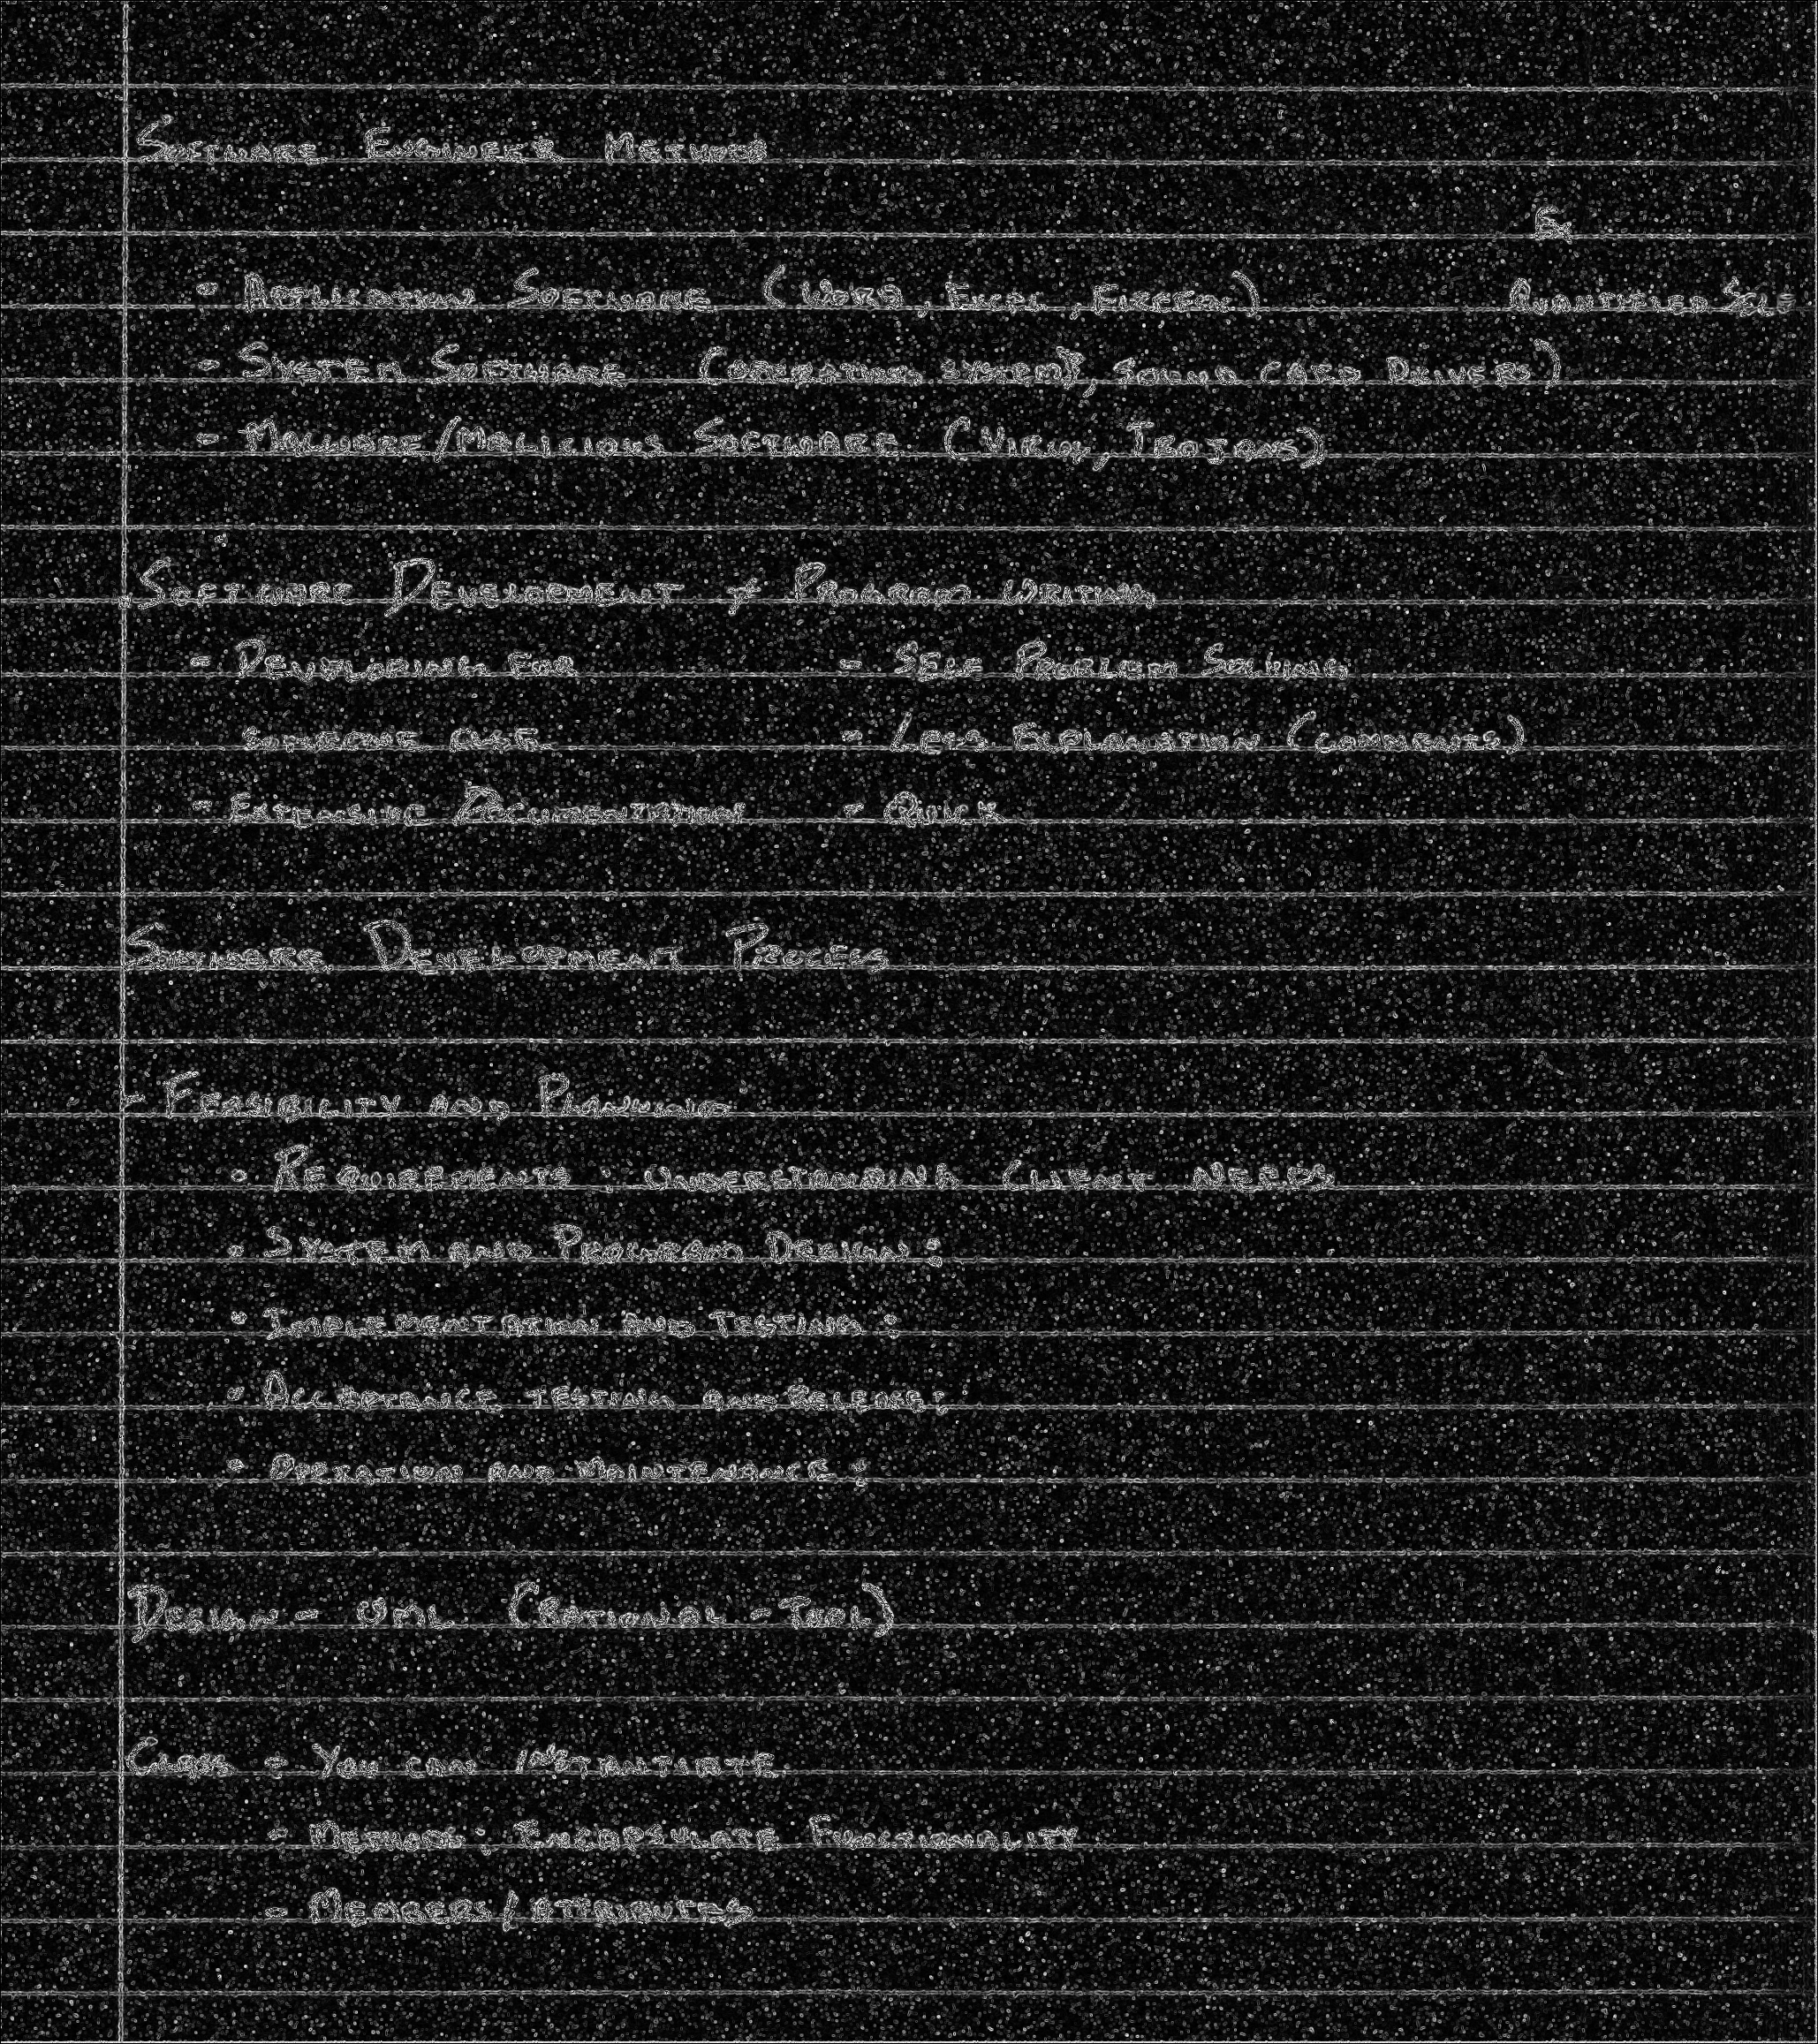 Software Engineer Methods
Ex
- Application Software (Word, Excel, Firefox) Quantified Self
- System Software (operating system, sound card Drivers)
- Malware/Malicious Software (Virus, Trojans)
Software Development ≠ Program Writing
- Developing for - Self Problem Solving
someone else - Less Explanation (comments)
- Extensive Documentation - Quick
Software Development Process
- Feasibility and Planning
• Requirements : Understanding Client needs
• System and Program Design :
• Implementation and Testing :
• Acceptance testing and Release :
• Operation and Maintenance :
Design - UML (Rational - Tool)
Class : You can instantiate
- Methods - Encapsulate Functionality
- Members/Attributes